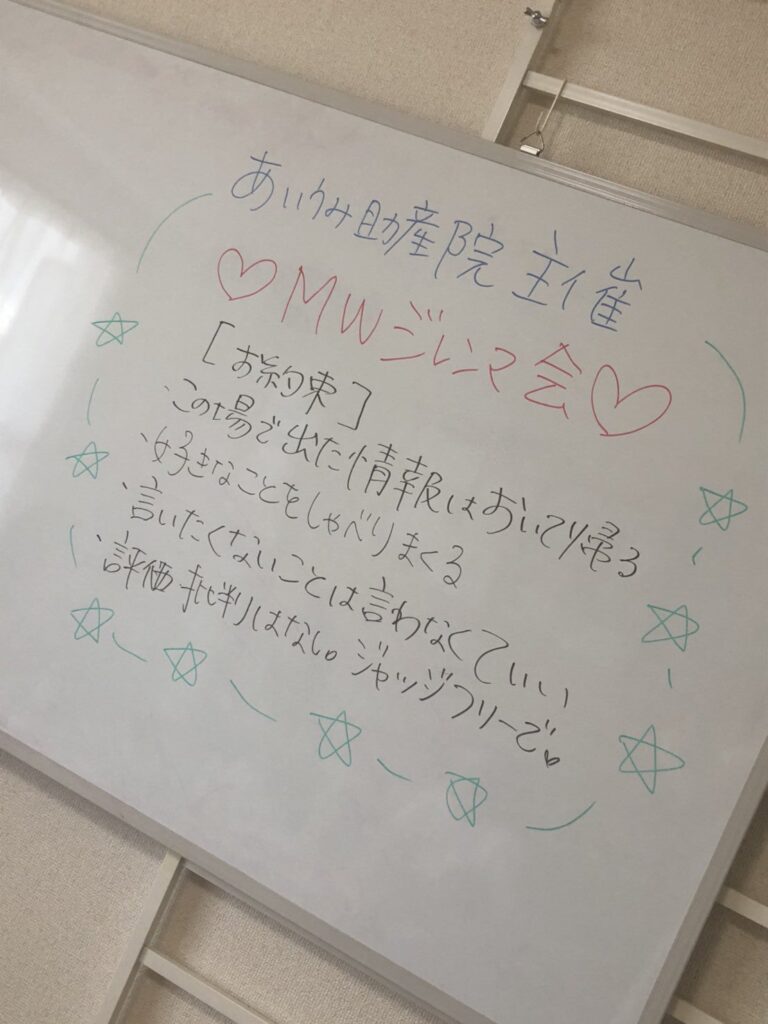 あいうみ助産院 主催
♡MWジレンマ会♡
[お約束]
・この場で出た情報はおいて帰る
・好きなことをしゃべりまくる
・言いたくないことは言わなくていい
・評価批判はなし。ジャッジフリーで。